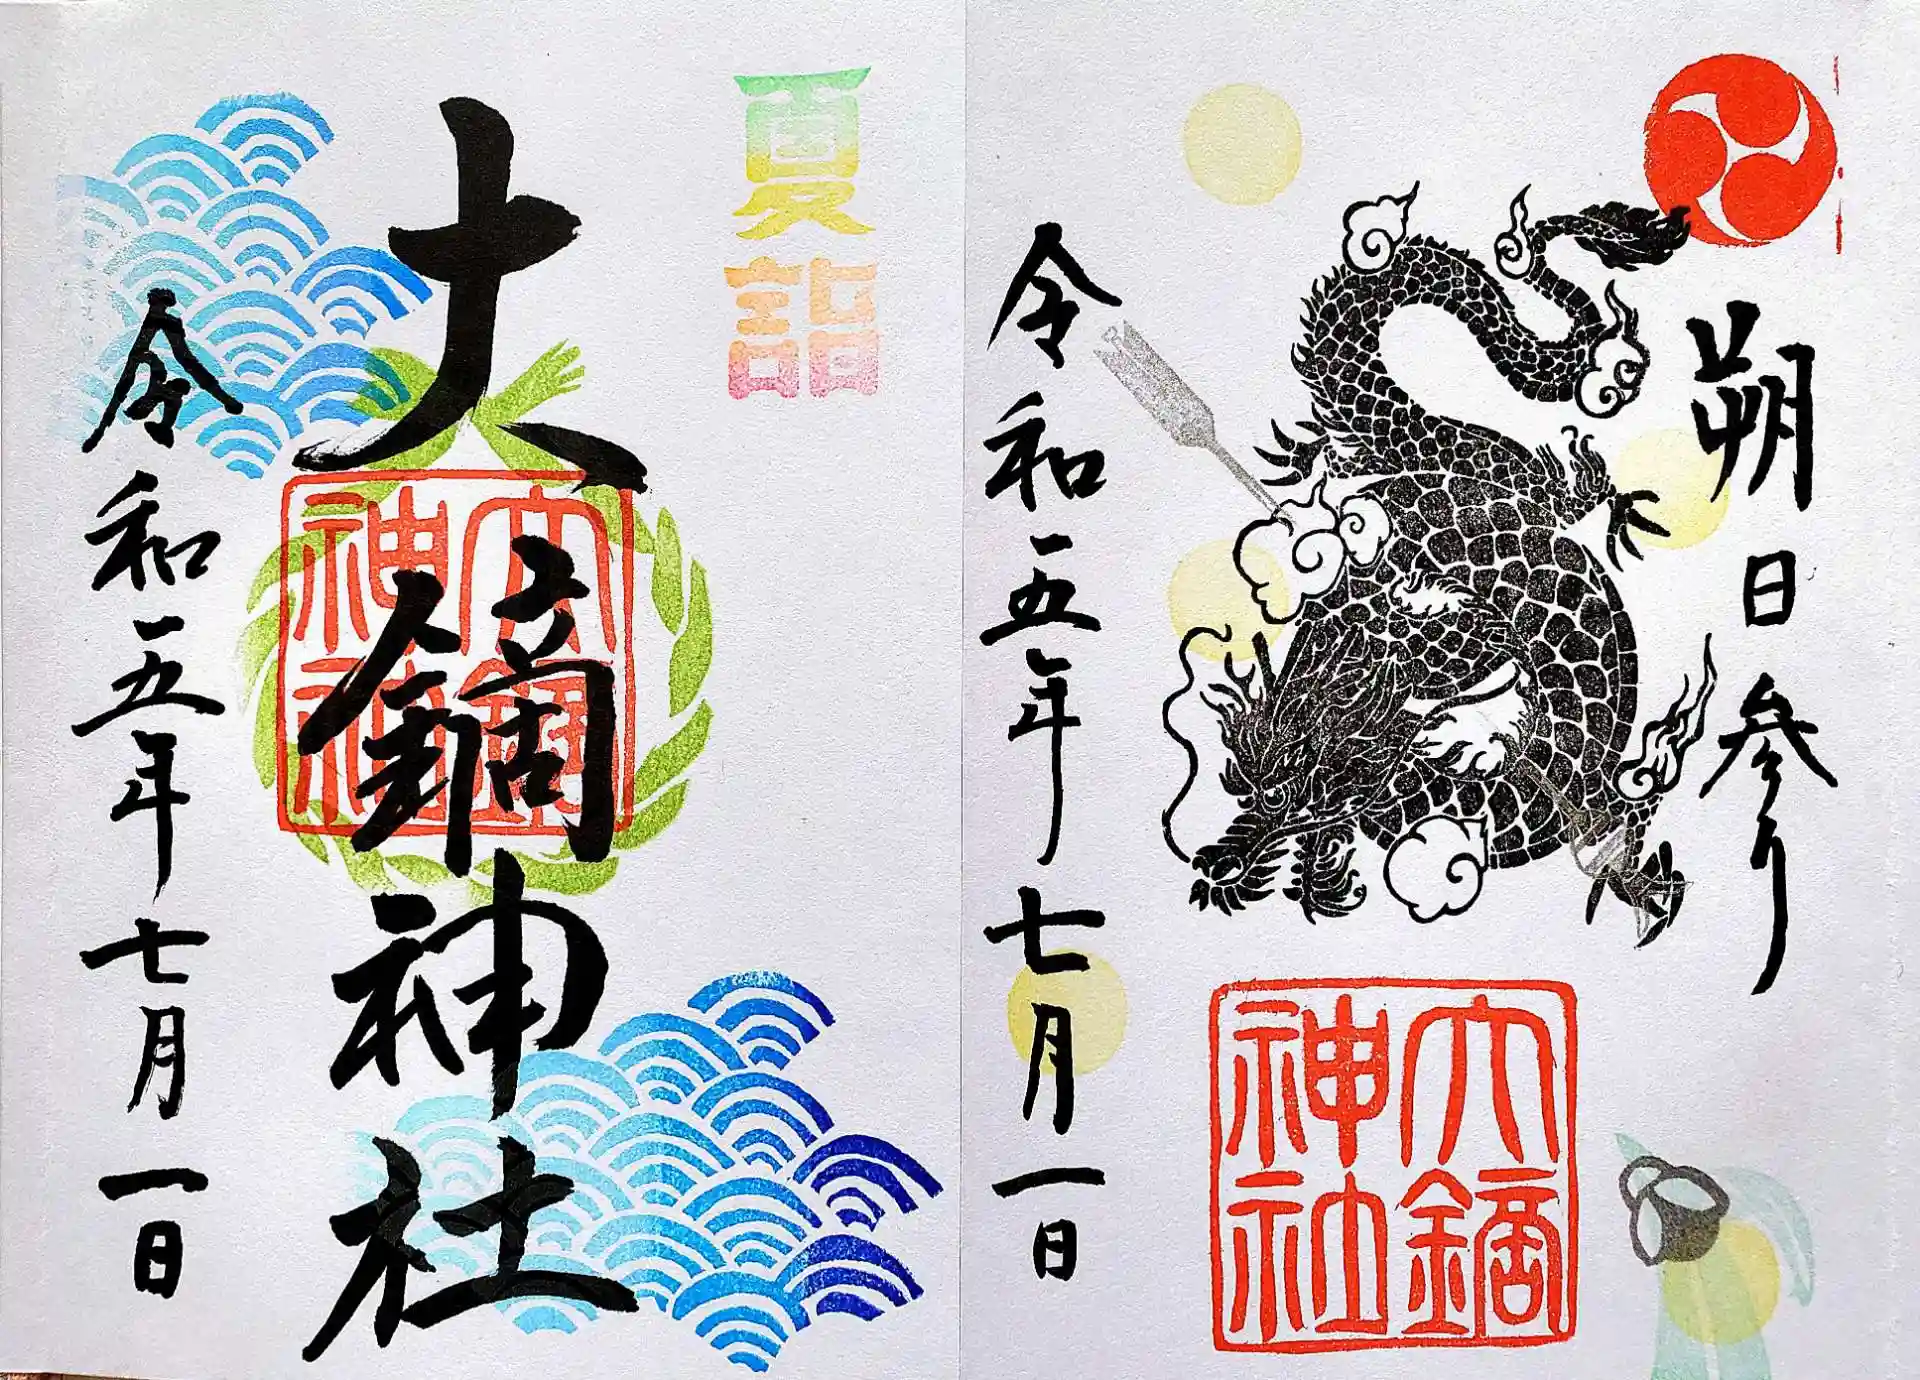 朔日参り
大鏑神社
令和五年七月一日
夏詣
大鏑神社
大鏑神社
令和五年七月一日